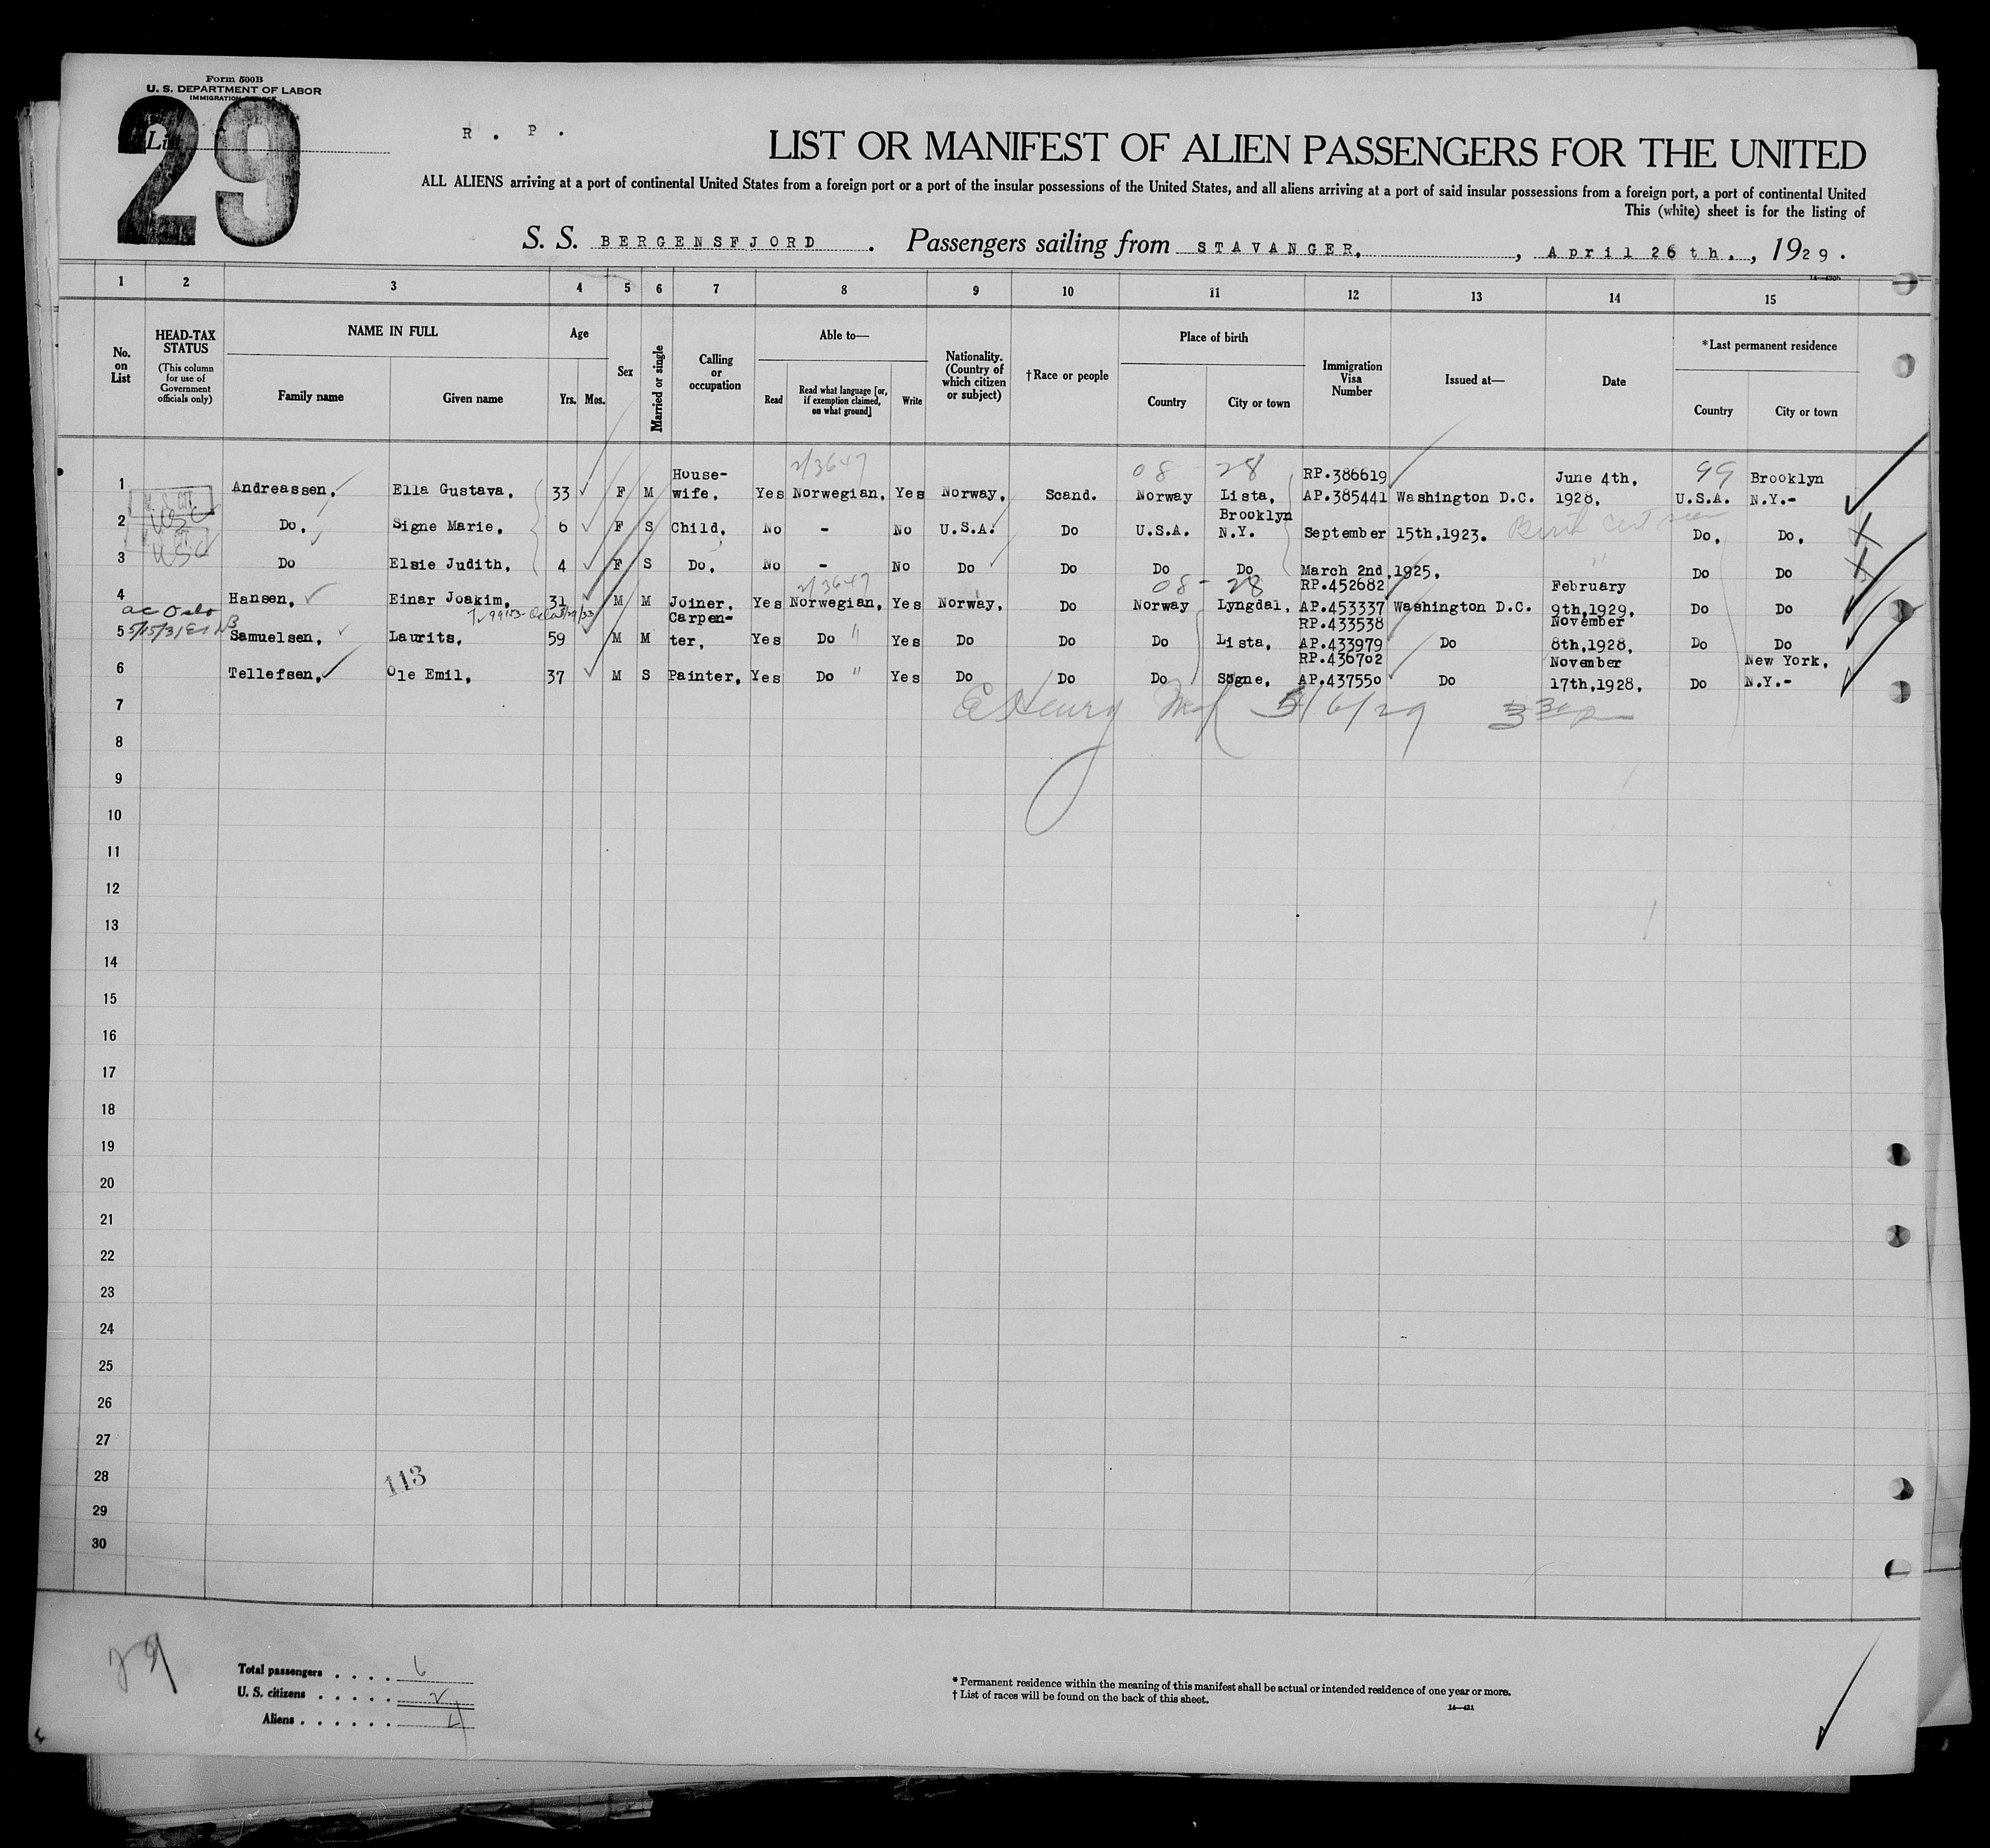 Form 500B
U. S. DEPARTMENT OF LABOR
IMMIGRATION SERVICE
29
List
R. P.
LIST OR MANIFEST OF ALIEN PASSENGERS FOR THE UNITED
ALL ALIENS arriving at a port of continental United States from a foreign port or a port of the insular possessions of the United States, and all aliens arriving at a port of said insular possessions from a foreign port, a port of continental United
This (white) sheet is for the listing of
S. S. BERGENSFJORD. Passengers sailing from STAVANGER, , April 26th. , 1929.
14—430b
1 2 3 4 5 6 7 8 9 10 11 12 13 14 15
No. on List
HEAD-TAX STATUS
(This column for use of Government officials only)
NAME IN FULL
Family name Given name
Age
Yrs. Mos.
Sex
Married or single
Calling or occupation
Able to—
Read Read what language [or, if exemption claimed, on what ground] Write
Nationality. (Country of which citizen or subject)
†Race or people
Place of birth
Country City or town
Immigration Visa Number
Issued at—
Date
*Last permanent residence
Country City or town
2/3647 08 28 99
1 Andreassen, Ella Gustava, 33 F M House-wife, Yes Norwegian, Yes Norway, Scand. Norway Lista, RP.386619 AP.385441 Washington D.C. June 4th, 1928. U.S.A. Brooklyn N.Y.-
USC
2 Do. Signe Marie, 6 F S Child, No - No U.S.A. Do U.S.A. Brooklyn N.Y. September 15th,1923. Birth Cert seen Do. Do.
USC
3 Do Elsie Judith, 4 F S Do, No - No Do Do Do Do March 2nd,1925. " Do Do
2/3647 08 - 28
4 Hansen, Einar Joakim, 31 M M Joiner, Yes Norwegian, Yes Norway, Do Norway Lyngdal, RP.452682 AP.453337 Washington D.C. February 9th,1929. Do Do
ac Oslo
5/15/31
5 Samuelsen, Laurits, 59 M M Carpen-ter, Yes Do " Yes Do Do Do Lista, RP.433538 AP.433979 Do November 8th,1928. Do Do
6 Tellefsen, Ole Emil, 37 M S Painter, Yes Do " Yes Do Do Do Søgne, RP.436702 AP.437550 Do November 17th,1928. Do New York, N.Y.-
7
5/6/29
8
9
10
11
12
13
14
15
16
17
18
19
20
21
22
23
24
25
26
27
28
113
29
30
29
Total passengers . . . . 6
U. S. citizens . . . . . 2
Aliens . . . . . . 4
* Permanent residence within the meaning of this manifest shall be actual or intended residence of one year or more.
† List of races will be found on the back of this sheet.
14—431